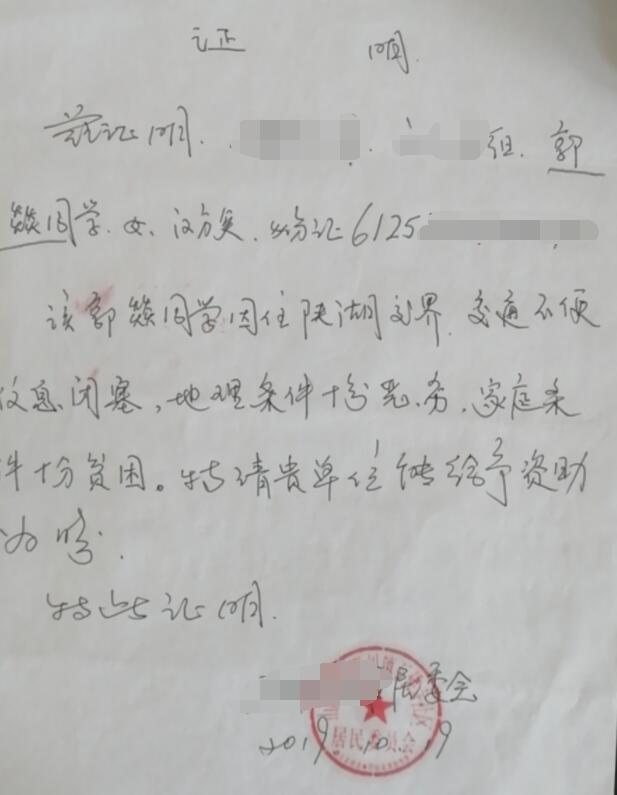 证 明
兹证明. 组. 郭
燚同学. 女. 汉方矣. 份证6125
该郭燚同学因住陕湖交界. 交通不便
仪息闭塞, 地理条件十份恶劣. 家庭条
件十份贫困。特请贵单位能给予资助
为盼.
特此证明.
居委会
居民委员会
2019. 10. 19